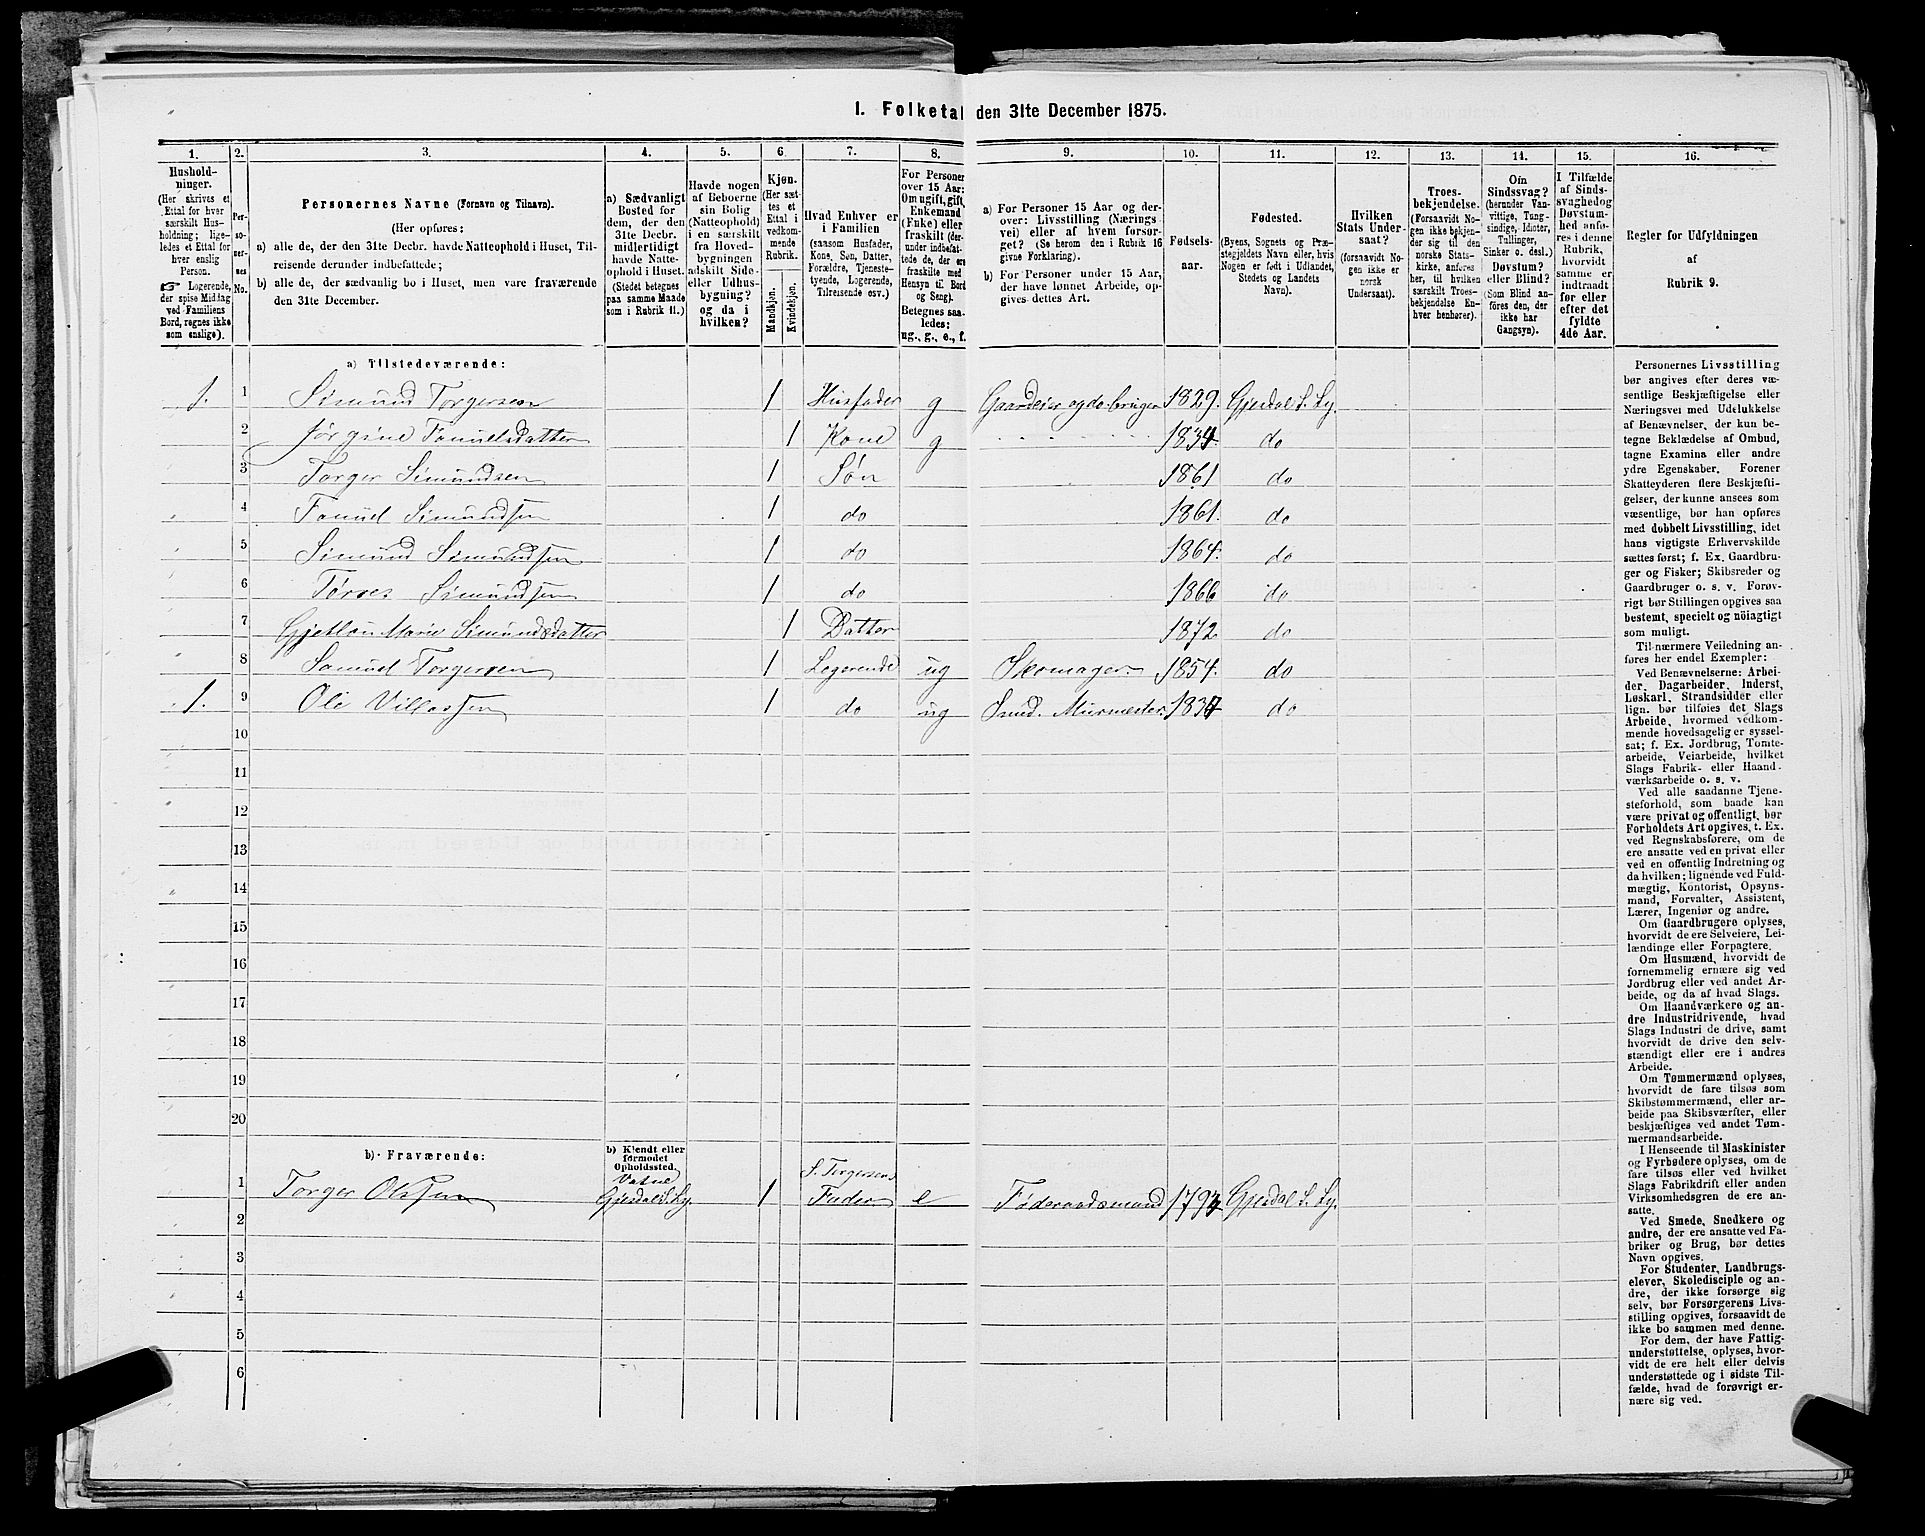 1. Folketal den 31te December 1875.
1. 2. 3. 4. 5. 6. 7. 8. 9. 10. 11. 12. 13. 14. 15. 16.
Hushold-
ninger.
(Her skrives et
Ettal for hver
særskilt Hus-
holdning; lige-
ledes et Ettal for
hver enslig
Person.
☞ Logerende,
der spise Middag
ved Familiens
Bord, regnes ikke
som enslige).
Per-
so-
ner-
nes
No.
Personernes Navne (Fornavn og Tilnavn).
(Her opføres:
a) alle de, der den 31te Decbr. havde Natteophold i Huset, Til-
reisende derunder indbefattede;
b) alle de, der sædvanlig bo i Huset, men vare fraværende
den 31te December.
a) Sædvanligt
Bosted for
dem, der den
31te Decbr.
midlertidigt
havde Natte-
ophold i Huset.
(Stedet betegnes
paa samme Maade
som i Rubrik 11.)
Havde nogen
af Beboerne
sin Bolig
(Natteophold)
i en særskilt
fra Hoved-
bygningen
adskilt Side-
eller Udhus-
bygning?
og da i
hvilken?
Kjøn.
(Her sæt-
tes et
Ettal i
vedkom-
mende
Rubrik.)
Mandkjøn.
Kvindekjøn.
Hvad Enhver er
i Familien
(saasom Husfader,
Kone, Søn, Datter,
Forældre, Tjeneste-
tyende, Logerende,
Tilreisende osv.)
For Personer
over 15 Aar:
Om ugift, gift,
Enkemand
(Enke) eller
fraskilt (der-
under indbefat-
tede de, der ere
fraskilte med
Hensyn til Bord
og Seng).
Betegnes saa-
ledes:
ug., g., e., f.
a) For Personer 15 Aar og der-
over: Livsstilling (Nærings
vei) eller af hvem forsør-
get? (Se herom den i Rubrik 16
givne Forklaring).
b) For Personer under 15 Aar,
der have lønnet Arbeide, op-
gives dettes Art.
Fødsels-
aar.
Fødested.
(Byens, Sognets og Præ-
stegjeldets Navn eller, hvis
Nogen er født i Udlandet,
Stedets og Landets
Navn).
Hvilken
Stats Under-
saat?
(forsaavidt No-
gen ikke er
norsk
Undersaat).
Troes-
bekjendelse.
(Forsaavidt No-
gen ikke bekjen-
der sig til den
norske Stats-
kirke, anføres
her, til hvilken
særskilt Troes-
bekjendelse En-
hver henhører).
Om
Sindssvag?
(herunder Van-
vittige, Tung-
sindige, Idioter,
Tullinger,
Sinker o. desl.)
Døvstum?
eller Blind?
(Som Blind an-
föres den, der
ikke har
Gangsyn).
I Tilfælde
af Sinds-
svaghed og
Døvstum-
hed anfø-
res i denne
Rubrik,
hvorvidt
samme er
indtraadt
før eller
efter det
fyldte
4de Aar.
Regler for Udfyldningen
af
Rubrik 9.
a) Tilstedeværende:
1. 1 Simund Torgersen 1 Husfader g Gaardeier og do. bruger 1829. Gjesdal S. Ly.
2 Jørgine Samuelsdatter 1 Kone g 1834 do
3 Torger Simundsen 1 Søn 1861 do
4 Samuel Simundsen 1 do 1861. do
5 Simund Simundsen 1 do 1864. do
6 Tørres Simundsen 1 do 1866 do
7 Marie Simundsdatter 1 Datter 1872 do
8 Samuel Torgersen 1 Logerende ug Skomager 1854. do
1. 9 Ole Villassen 1 do ug Smed. Murmester. 1834 do
10
11
12
13
14
15
16
17
18
19
20
b) Fraværende:
b) Kjendt eller
formodet
Opholdssted.
1 Torger Olsen Vatne Gjesdal S. Ly. 1 S. Torgersens Fader e Føderaadsmand 1794 Gjesdal S. Ly.
2
3
4
5
6
Personernes Livsstilling
bør angives efter deres væ-
sentlige Beskjæftigelse eller
Næringsvei med Udelukkelse
af Benævnelser, der kun be-
tegne Beklædelse af Ombud,
tagne Examina eller andre
ydre Egenskaber. Forener
Skatteyderen flere Beskjæfti-
gelser, der kunne ansees som
væsentlige, bør han opføres
med dobbelt Livsstilling, idet
hans vigtigste Erhvervskilde
sættes først; f. Ex. Gaardbru-
ger og Fisker; Skibsreder og
Gaardbruger o. s. v. Forøv-
rigt bør Stillingen opgives saa
bestemt, specielt og nöiagtigt
som muligt.
Til nærmere Veiledning an-
føres her endel Exempler:
Ved Benævnelserne: Arbei-
der, Dagarbeider, Inderst,
Løskarl, Strandsidder eller
lign. bør tilføies det Slags
Arbeide, hvormed vedkom-
mende hovedsagelig er syssel-
sat; f. Ex. Jordbrug, Tomte-
arbeide, Veiarbeide, hvilket
Slags Fabrik- eller Haand-
værksarbeide o. s. v.
Ved alle saadanne Tjene-
steforhold, som baade kan
være privat og offentligt, bør
Forholdets Art opgives, t. Ex.
ved Regnskabsførere, om de
ere ansatte ved en privat eller
ved en offentlig Indretning og
da hvilken; lignende ved Fuld-
mægtig, Kontorist, Opsyns-
mand, Forvalter, Assistent,
Lærer, Ingeniør og andre.
Om Gaardbrugere oplyses,
hvorvidt de ere Selveiere, Lei-
lændinge eller Forpagtere.
Om Husmænd, hvorvidt de
fornemmelig ernære sig ved
Jordbrug eller ved andet Ar-
beide, og da af hvad Slags.
Om Haandværkere og an-
dre Industridrivende, hvad
Slags Industri de drive, samt
hvorvidt de drive den selv-
stændigt eller ere i andres
Arbeide.
Om Tømmermænd oplyses,
hvorvidt de fare tilsøs som
Skibstømmermænd, eller ar-
beide paa Skibsværfter, eller
beskjæftiges ved andet Tøm-
mermandsarbeide.
I Henseende til Maskinister
og Fyrbødere oplyses, om de
fare tilsøs eller ved hvilket
Slags Fabrikdrift eller anden
Virksomhedsgren de ere an-
satte.
Ved Smede, Snedkere og
andre, der ere ansatte ved Fa-
briker og Brug, bør dettes
Navn opgives.
For Studenter, Landbrugs-
elever, Skoledisciple og an-
dre, der ikke forsørge sig
selv, bør Forsørgerens Livs-
stilling opgives, forsaavidt de
ikke bo sammen med denne.
For dem, der have Fattig-
understøttelse, oplyses, hvor-
vidt de ere helt eller delvis
understøttede og i sidste Til-
fælde, hvad de forøvrigt er-
nære sig ved.